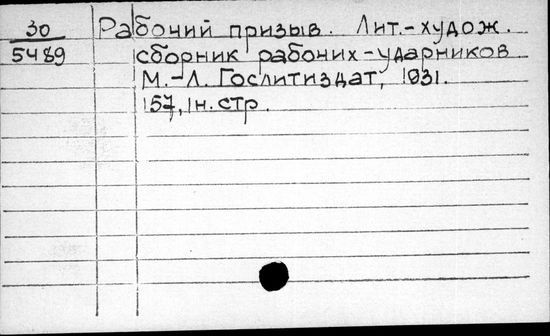 30 Рабочий призыв. Лит.-худож.
5489 сборник рабочих-ударников
М.-Л. Гослитиздат, 1931.
157, 1н. стр.